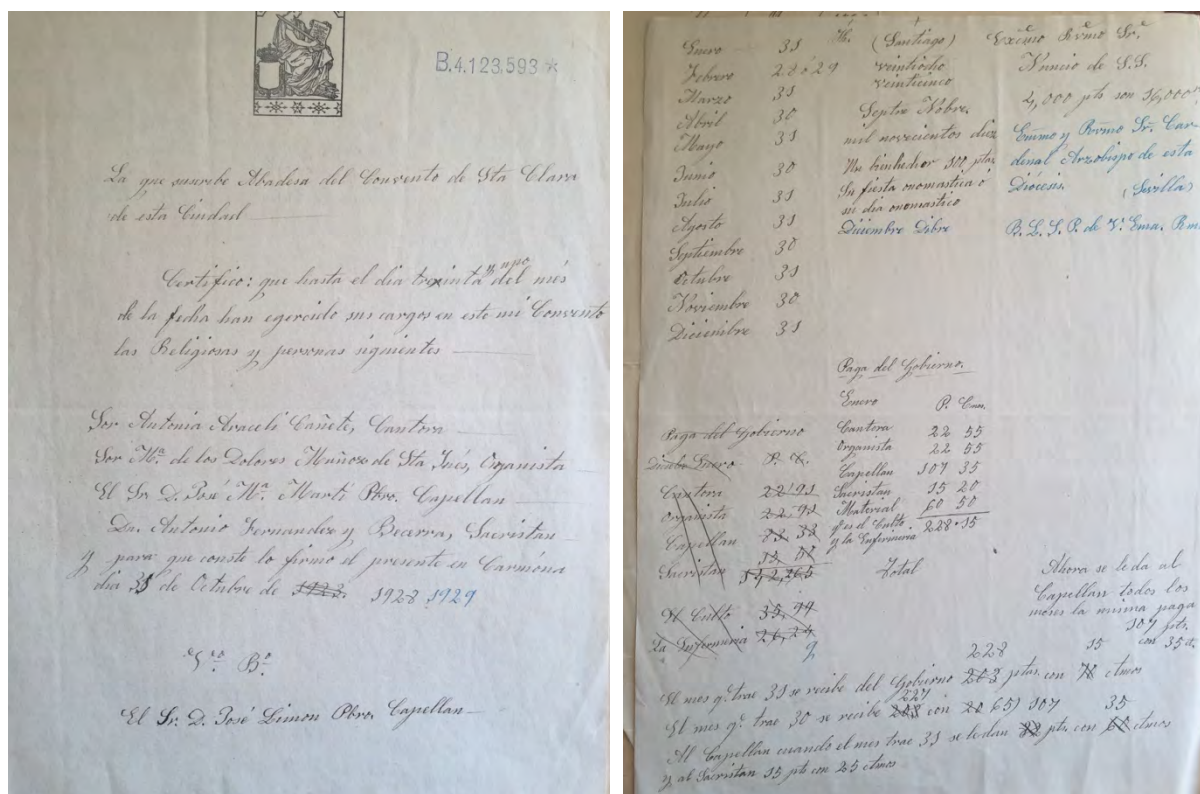 B.4.123.593 *
La que suscribe Abadesa del Convento de Sta Clara
de esta Ciudad
Certifico: que hasta el dia treinta y uno del més
de la fecha han egercido sus cargos en este mi Convento
las Religiosas y personas siguientes
Sor Antonia Araceli Cañete, Cantora
Sor Mª. de los Dolores Muñoz de Sta Inés, Organista
El Sr. D. José Mª. Martí Pbro. Capellan
Dn. Antonio Fernandez y Becerra, Sacristan
y para que conste lo firmo el presente en Carmóna
dia 31 de Octubre de 1923. 1928 1929
Vto. Bº.
El Sr. D. José Limon Pbro. Capellan
Enero 31
Febrero 28 ó 29
Marzo 31
Abril 30
Mayo 31
Junio 30
Julio 31
Agosto 31
Septiembre 30
Octubre 31
Noviembre 30
Diciembre 31
(Santiago)
veintiocho
veinticinco
Septre Nobre.
mil novecientos diez
Un bienhechor 100 ptas
Su fiesta onomastica ó
su dia onomastico
Diciembre Dibre
Excmo Rvmo Sr.
Nuncio de S.S.
4,000 pts son 16,000
Emmo y Rvmo Sr. Car-
denal Arzobispo de esta
Diócesis. (Sevilla)
B. L. S. P. de V. Ema. Rma
Paga del Gobierno.
Enero P. Cmn.
Cantora 22 55
Organista 22 55
Capellan 107 35
Sacristan 15 20
Material 60 50
q es d. Culto 228.15
y la Enfermeria
Total
Paga del Gobierno
Enero P. C.
Cantora 22'91
Organista 22,91
Capellan
Sacristan
El Culto 35,99
La Enfermeria
Ahora se le da al
Capellan todos los
meses la misma paga
107 pts.
con 35 ct.
228 15
El mes q. trae 31 se recibe del Gobierno ptas. con ctmos
227
El mes q. trae 30 se recibe con 65) 107 35
Al Capellan cuando el mes trae 31 se le dan pts. con ctmos
y al Sacristan 15 pts con 25 ctmos